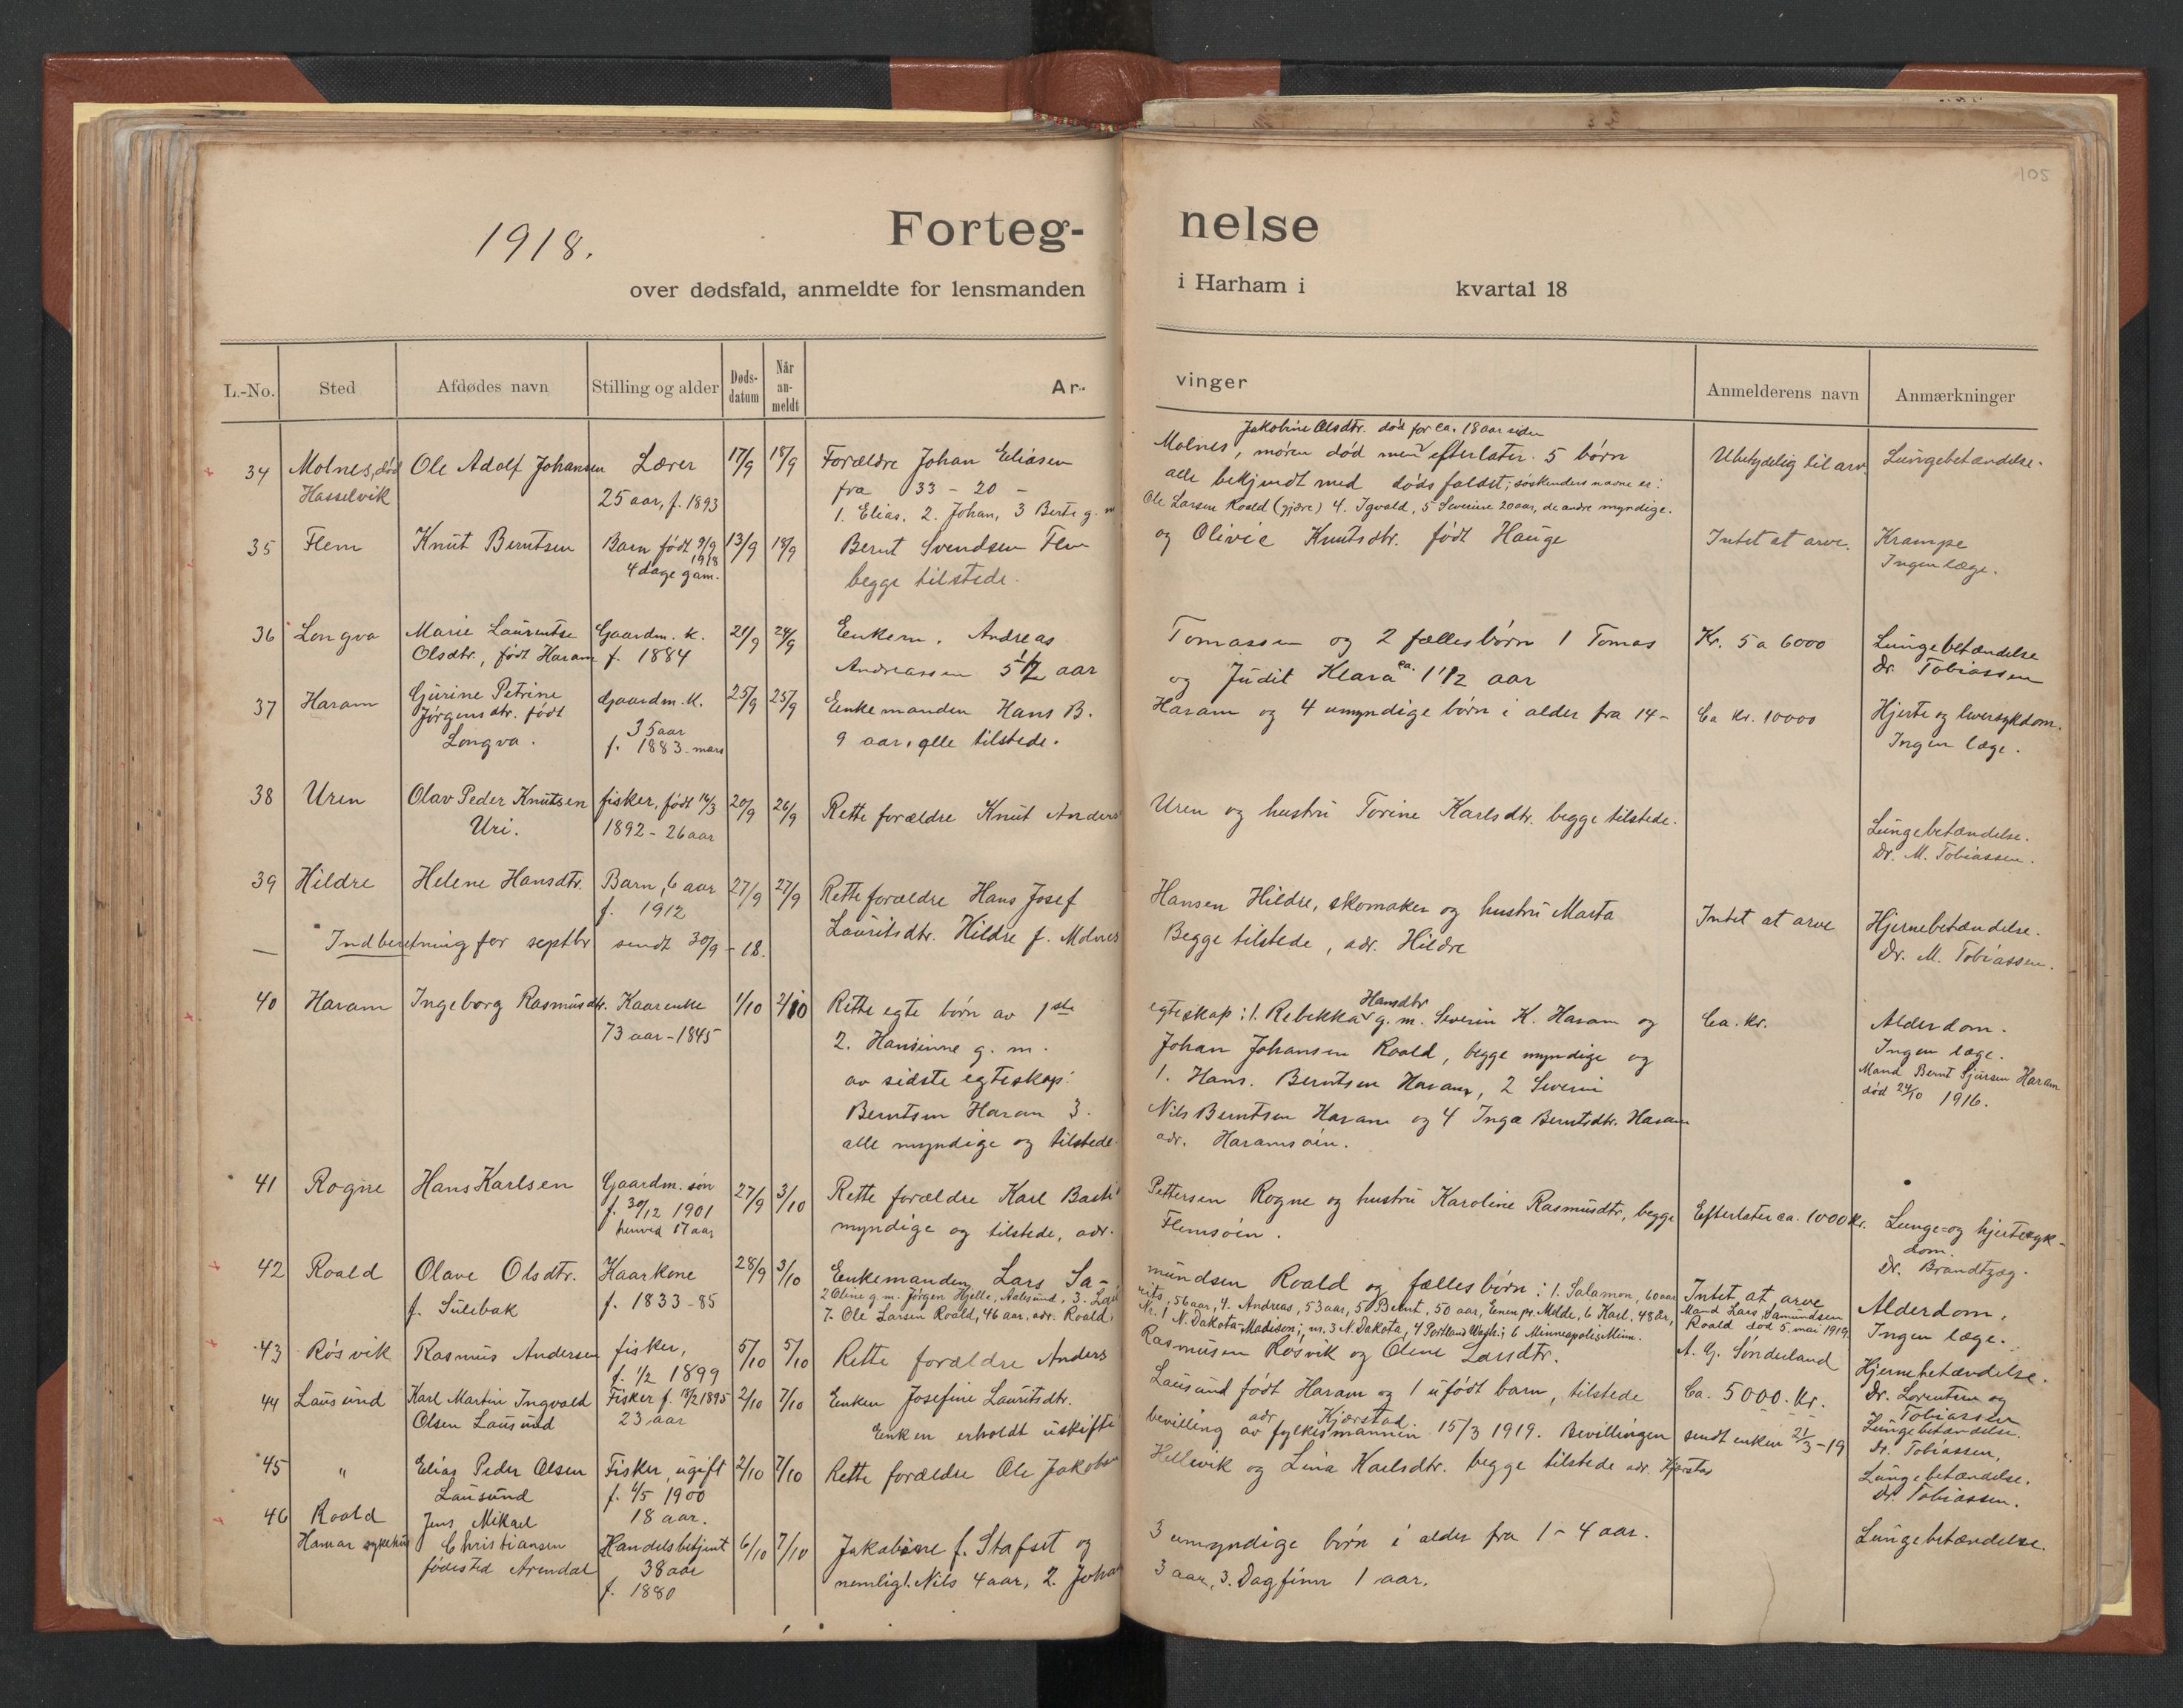 105
1918.
Forteg-
nelse
over dødsfald, anmeldte for lensmanden
i Harham i kvartal 18
L.-No. Sted Afdødes navn Stilling og alder Døds-datum Når an-meldt Ar-
vinger Anmelderens navn Anmærkninger
34 Molnes, død Ole Adolf Johansen Lærer 17/9 18/9 Forældre Johan Eliasen
Hasselvik 25 aar, f. 1893 fra 33 - 20 -
1. Elias. 2. Johan, 3 Berte g. m
Jakobine Olsdtr. død for ca. 18 aar siden
Molnes, møren død men efterlater 5 børn Ubetydelig til arv. Lungebetændelse.
alle bekjendt med dødsfaldet; søskendens navne er:
Ole Larsen Roald (gjære) 4. Ingvald, 5 Severine 20 aar, de andre myndige.
35 Flem Knut Berntsen Barn født 9/9 1918 13/9 18/9 Bernt Svendsen Flem
4 dage gam. begge tilstede.
og Olivie Knutsdtr. født Hauge Intet at arve. Krampe
Ingen læge.
36 Longva Marie Laurentse Gaardm. k. 21/9 24/9 Enkem. Andreas
Olsdtr., født Haram f. 1884 Andreassen 5 1/2 aar
Tomassen og 2 fællesbørn 1 Tomas Kr. 5 a 6000 Lungebetændelse
og Judit Klara ca. 1 1/2 aar Dr. Tobiassen
37 Haram Gurine Petrine Gaardm. K. 25/9 25/9 Enkemanden Hans B.
Jørgensdtr. født 35 aar
Longva. f. 1883 - mars 9 aar, alle tilstede.
Haram og 4 umyndige børn i alder fra 14- Ca Kr. 10000 Hjerte og leversykdom.
Ingen læge.
38 Uren Olav Peder Knutsen fisker, født 14/3 20/9 26/9 Rette forældre Knut Anders
Uri. 1892 - 26 aar
Uren og hustru Torine Karlsdtr. begge tilstede.
Lungebetændelse.
Dr. M. Tobiassen.
39 Hildre Helene Hansdtr. Barn, 6 aar 27/9 27/9 Rette forældre Hans Josef
f. 1912 Lauritsdtr. Hildre f. Molnes
Hansen Hildre, skomaker og hustru Marta Intet at arve Hjernebetændelse.
Begge tilstede, adr. Hildre Dr. M. Tobiassen.
— Indberetning for septbr sendt 30/9 - 18.
40 Haram Ingeborg Rasmusdtr. Kaarenke 1/10 2/10 Rette egte børn av 1ste
73 aar - 1845 2. Hansinne g. m.
av sidste egteskap:
Berntsen Haram 3.
alle myndige og tilstede
Hansdtr
egteskap: 1. Rebekka g. m. Severin K. Haram og Ca. Kr. Alderdom.
Johan Johansen Roald, begge myndige og Ingen læge.
1. Hans. Berntsen Haram, 2 Severin Mand Bernt Sjursen Haram
Nils Berntsen Haram og 4 Inga Berntsdtr. Haram død 24/10 1916.
adr. Haramsøen.
41 Rogne Hans Karlsen Gaardm. søn 27/9 3/10 Rette forældre Karl Basti
f. 30/12 1901 myndige og tilstede, adr.
henved 17 aar
Pettersen Rogne og hustru Karoline Rasmusdtr, begge Efterlater ca. 1000 kr. Lunge- og hjertesyk-
Flemsøen. dom.
Dr. Brandtzæg.
42 Roald Olave Olsdtr. Kaarkone 28/9 3/10 Enkemanden Lars Sa-
f. Sulebak f. 1833 - 85 2 Oline g. m. Jørgen Hjelle, Aalesund, 3. Lau
7. Ole Larsen Roald, 46 aar, adr. Roald,
mundsen Roald og fællesbørn: 1. Salamon, 60 aar Intet at arve Alderdom.
rits, 56 aar, 4. Andreas, 53 aar, 5 Bernt, 50 aar, Eenen pr. Molde, 6 Karl, 48 år, Mand Lars Samundsen Ingen læge.
Nr. 1 N. Dakota-Madison; nr. 3 N. Dakota, 4 Portland Wash.; 6 Minneapolis Minn. Roald død 5. mai 1919
43 Røsvik Rasmus Andersen fisker, 5/10 5/10 Rette forældre Anders
f. 1/2 1899
Rasmusen Røsvik og Oline Larsdtr. A. G. Sønderland Hjernebetændelse.
Dr. Lorentsen og
Tobiassen
44 Lausund Karl Martin Ingvald Fisker f. 13/2 1895 2/10 7/10 Enken Josefine Lauritsdtr.
Olsen Lausund 23 aar Enken erholdt uskifte
Lausund født Haram og 1 ufødt barn, tilstede Ca. 5000. Kr. Lungebetændelse.
adr. Kjærstad.
bevilling av fylkesmannen 15/3 1919. Bevillingen sendt enken 21/3 - 19 Dr. Tobiassen,
45 " Elias Peder Olsen Fisker, ugift 2/10 7/10 Rette forældre Ole Jakobsen
Lausund f. 4/5 1900
18 aar.
Hellevik og Lina Karlsdtr. begge tilstede adr. Kjærstad Lungebetændelse.
Dr. Tobiassen.
46 Roald Jens Mikael Handelsbetjent 6/10 7/10 Jakobine f. Stafset og
Hamar sykehus Christiansen 38 aar nemligl. Nils 4 aar, 2. Johan
fødested Arendal f. 1880
3 umyndige børn i alder fra 1 - 4 aar. Lungebetændelse.
3 aar, 3. Dagfinn 1 aar.